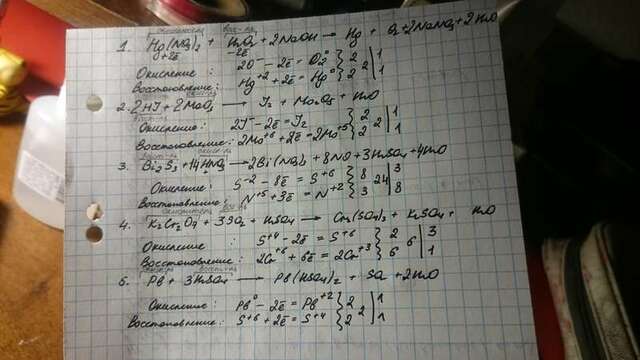 окислитель восст-ль
1. Hg(NO₃)₂ + H₂O₂ + 2NaOH → Hg + O₂ + 2NaNO₃ + 2H₂O
+2ē -2ē
Окисление: 2O⁻ - 2ē = O₂⁰ } 2 | 2 | 1
Восстановление: Hg⁺² + 2ē = Hg⁰ } 2 | 1
2. 2HJ + 2MoO₃ → J₂ + Mo₂O₅ + H₂O
Окисление: 2J⁻ - 2ē = J₂ } 2 | 2 | 1
Восстановление: 2Mo⁺⁶ + 2ē = 2Mo⁺⁵ } 2 | 1
3. Bi₂S₃ + 14HNO₃ → 2Bi(NO₃)₃ + 8NO + 3H₂SO₄ + 4H₂O
Окисление: S⁻² - 8ē = S⁺⁶ } 8 | 24 | 3
Восстановление: N⁺⁵ + 3ē = N⁺² } 3 | 8
4. K₂Cr₂O₇ + 3SO₂ + H₂SO₄ → Cr₂(SO₄)₃ + K₂SO₄ + H₂O
Окисление: S⁺⁴ - 2ē = S⁺⁶ } 2 | 6 | 3
Восстановление: 2Cr⁺⁶ + 6ē = 2Cr⁺³ } 6 | 1
5. Pb + 3H₂SO₄ → Pb(HSO₄)₂ + SO₂ + 2H₂O
Окисление: Pb⁰ - 2ē = Pb⁺² } 2 | 2 | 1
Восстановление: S⁺⁶ + 2ē = S⁺⁴ } 2 | 1